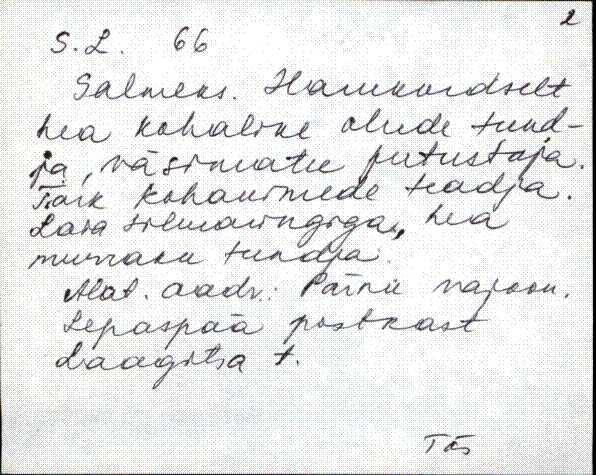 2
S.L. 66
Salmeks. Harukordselt
hea kohalike olude tund-
ja, väsimatu jutustaja.
Täik kohanimede teadja.
Laia silmaringiga, hea
murraku tundja.
Alat. aadr.: Pärnu rajoon.
Lepaspää postkast
Laagitsa t.